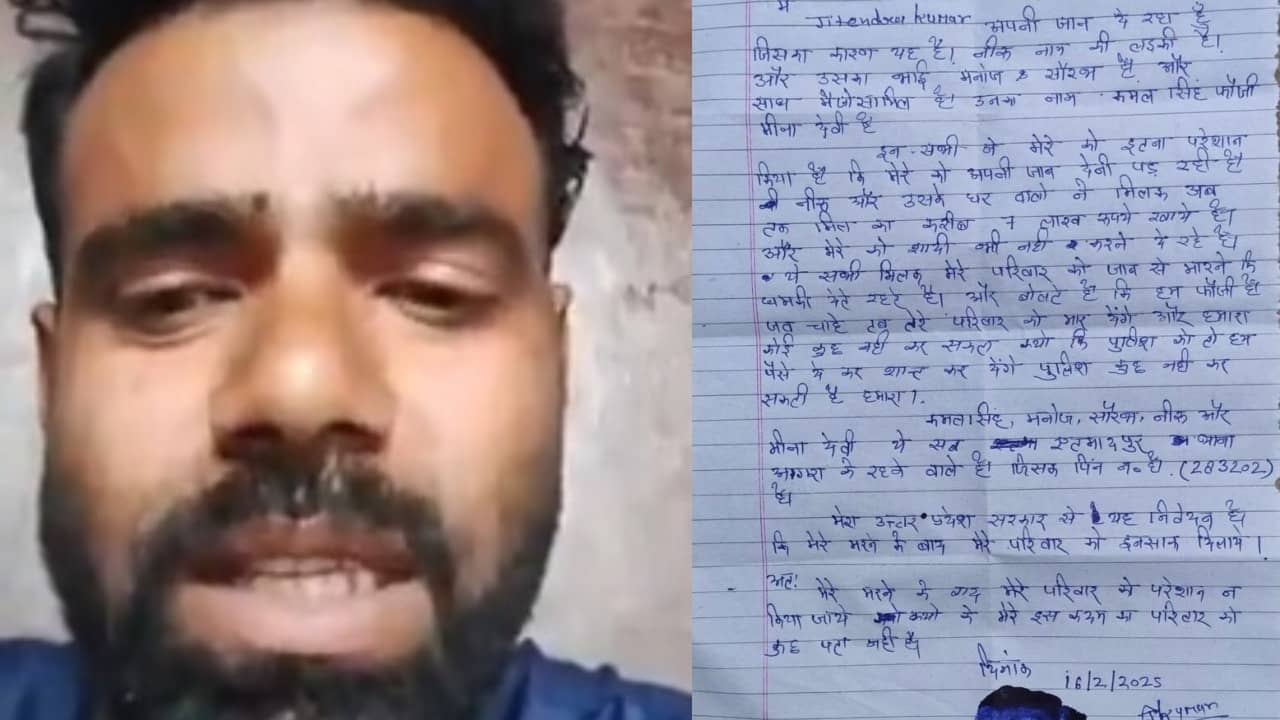 मैं
Jitendra kumar अपनी जान दे रहा हूँ
जिसका कारण यह है। नीरू नाम की लडकी है।
और उसका भाई मनोज & सौरभ है और
साथ मै सामिल है। उनका नाम कमल सिंह फौजी
मीना देवी है
इन सभी ने मेरे को इतना परेशान
किया है कि मेरे को अपनी जान देनी पड़ रही है।
नीरू और उसके घर वालो ने मिलक अब
तक मिल का करीब 7 लाख रूपये खाये है।
और मेरे को शादी भी नही करने दे रहे है।
ये सभी मिलक मेरे परिवार को जान से मारने कि
धमकी देते रहते है। और बोलते है कि हम फौजी है
जब चाहे तब तेरे परिवार को मार देंगे और हमारा
कोई कुछ नही कर सकता क्यो कि पुलिश को तो हम
पैसे दे कर शान्त कर देंगे पुलिश कुछ नही कर
सकती है हमारा।
कमला सिंह, मनोज, सौरभ, नीरू और
मीना देवी ये सब एत्मादपुर थाना
आगरा के रहने वाले है। जिसका पिन न० है. (283202)
है।
मेरा उत्तर प्रदेश सरकार से यह निवेदन है
कि मेरे मरने के बाद मेरे परिवार को इनसाफ दिलाये।
अतः
मेरे मरने के बाद मेरे परिवार को परेशान न
किया जाये क्यो के मेरे इस कदम का परिवार को
कुछ पता नही है।
दिनांक
16/2/2025